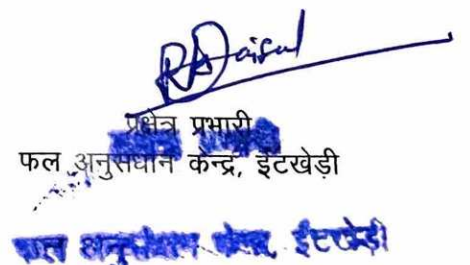 प्रक्षेत्र प्रभारी
फल अनुसंधान केन्द्र, ईंटखेड़ी
फल अनुसंधान केन्द्र, ईंटखेड़ी